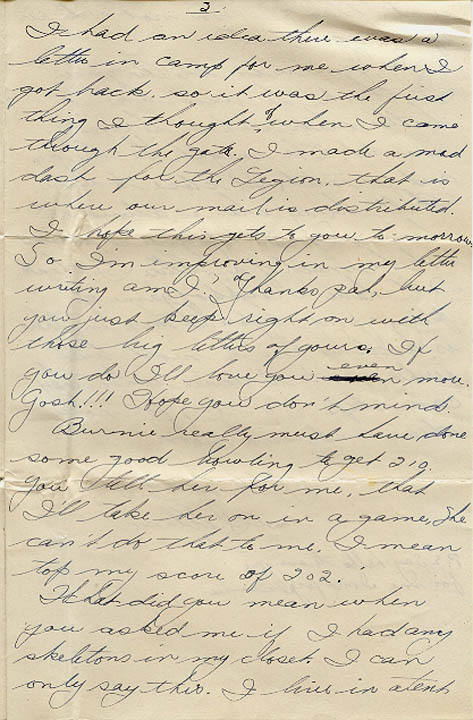 3
I had an idea there was a
letter in camp for me when I
got back, so it was the first
thing I thought of when I came
through the gate. I made a mad
dash for the Legion, that is
where our mail is distributed.
I hope this gets to you to-morrow
So I'm improving in my letter
writing am I? Thanks pal, but
you just keep right on with
those big letters of yours. If
you do I'll love you even more.
Gosh!!! I hope you don't mind.
Burnie really must have done
some good bowling to get 210.
You tell her for me, that
I'll take her on in a game, She
can't do that to me. I mean
top my score of 202.
What did you mean when
you asked me if I had any
skeletons in my closet. I can
only say this. I live in a tent